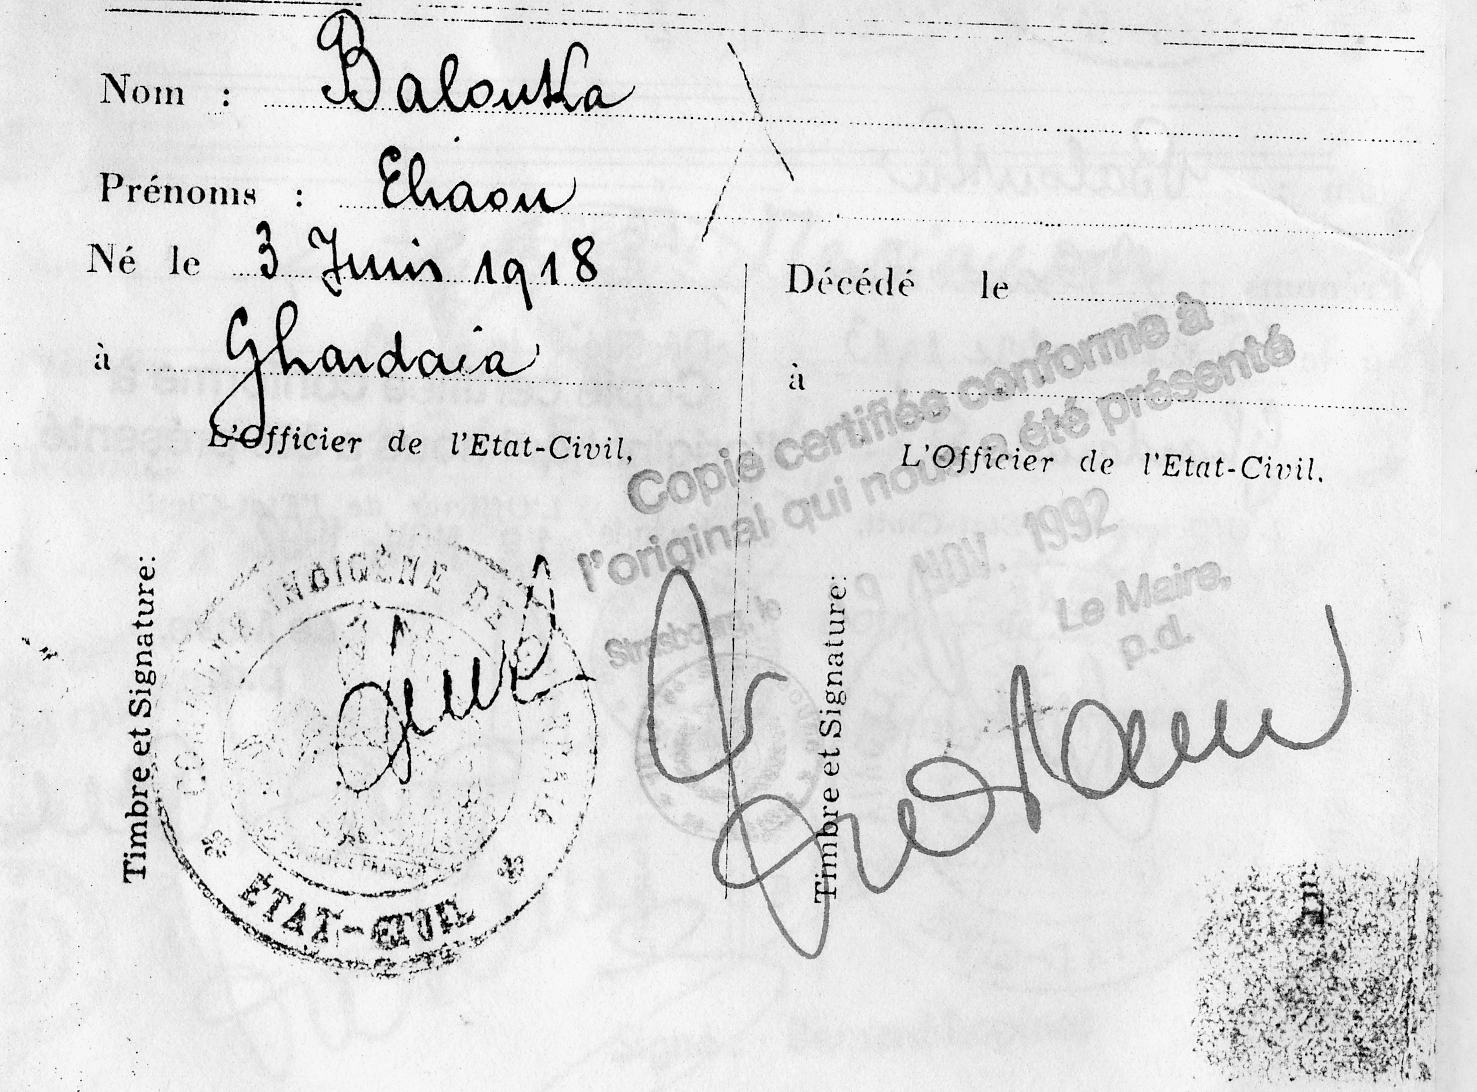 Nom : Balouka
Prénoms : Eliaou
Né le 3 Juin 1918
à Ghardaia
L'Officier de l'Etat-Civil,
Timbre et Signature:
COMMUNE INDIGÈNE DE
ÉTAT-CIVIL
Décédé le
à
L'Officier de l'Etat-Civil.
Timbre et Signature:
Copie certifiée conforme à
l'original qui nous a été présenté
Strasbourg, le NOV. 1992
Le Maire,
p.d.